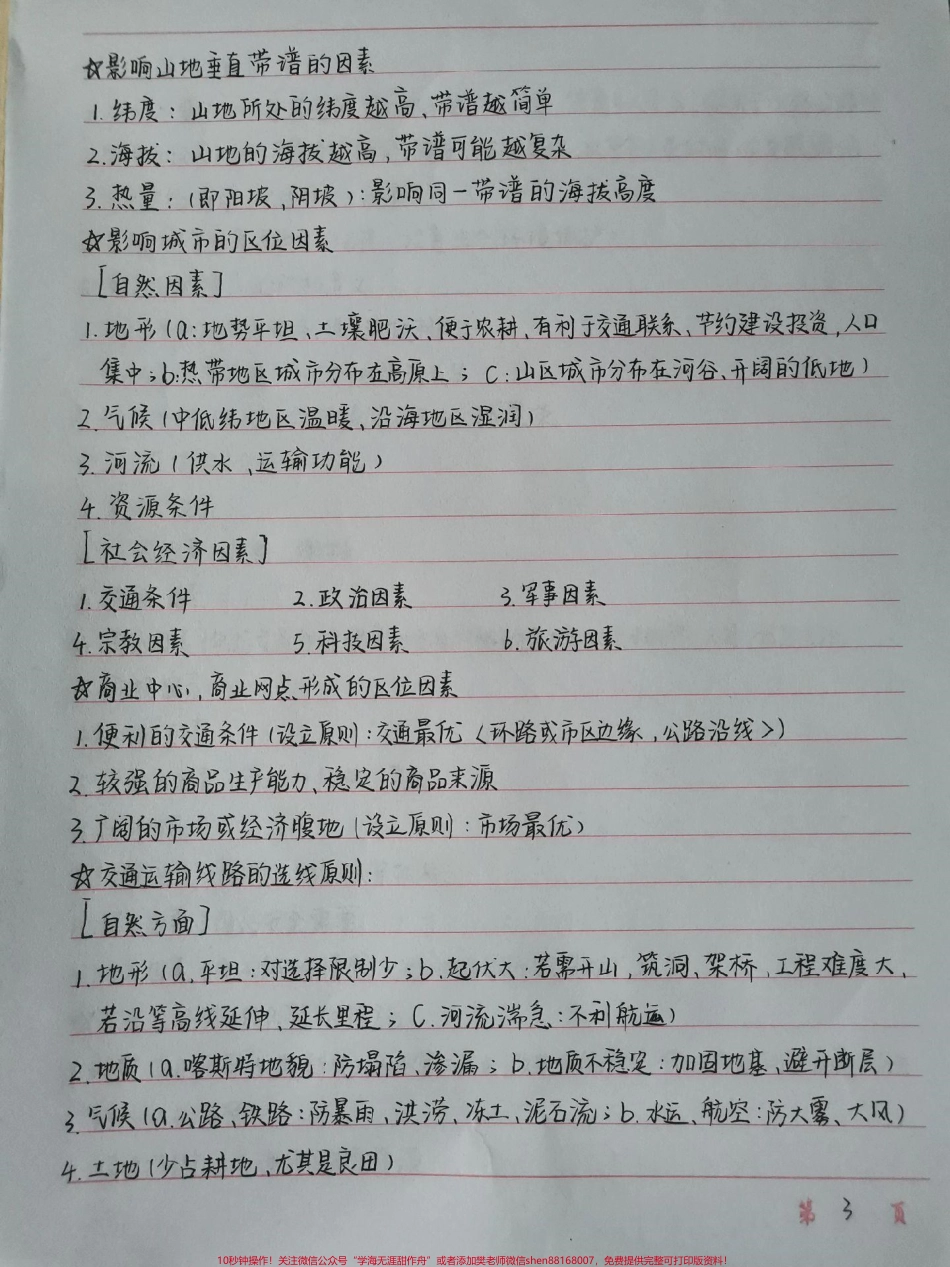 ☆影响山地垂直带谱的因素
1.纬度：山地所处的纬度越高、带谱越简单
2.海拔：山地的海拔越高,带谱可能越复杂
3.热量：(即阳坡,阴坡):影响同一带谱的海拔高度
☆影响城市的区位因素
[自然因素]
1.地形(a:地势平坦、土壤肥沃、便于农耕、有利于交通联系、节约建设投资,人口
集中;b:热带地区城市分布在高原上；c:山区城市分布在河谷、开阔的低地)
2.气候(中低纬地区温暖、沿海地区湿润)
3.河流(供水、运输功能)
4.资源条件
[社会经济因素]
1.交通条件 2.政治因素 3.军事因素
4.宗教因素 5.科技因素 6.旅游因素
☆商业中心,商业网点形成的区位因素
1.便利的交通条件(设立原则:交通最优<环路或市区边缘,公路沿线>)
2.较强的商品生产能力、稳定的商品来源
3.广阔的市场或经济腹地(设立原则:市场最优)
☆交通运输线路的选线原则:
[自然方面]
1.地形(a.平坦:对选择限制少;b.起伏大:若需开山,筑洞、架桥,工程难度大,
若沿等高线延伸、延长里程；C.河流湍急:不利航运)
2.地质(a.喀斯特地貌:防塌陷、渗漏；b.地质不稳定:加固地基,避开断层)
3.气候(a.公路、铁路:防暴雨,洪涝、冻土、泥石流;b.水运、航空:防大雾、大风)
4.土地(少占耕地、尤其是良田)
第 3 页
10秒钟操作！关注微信公众号“学海无涯甜作舟”或者添加樊老师微信shen88168007，免费提供完整可打印版资料！